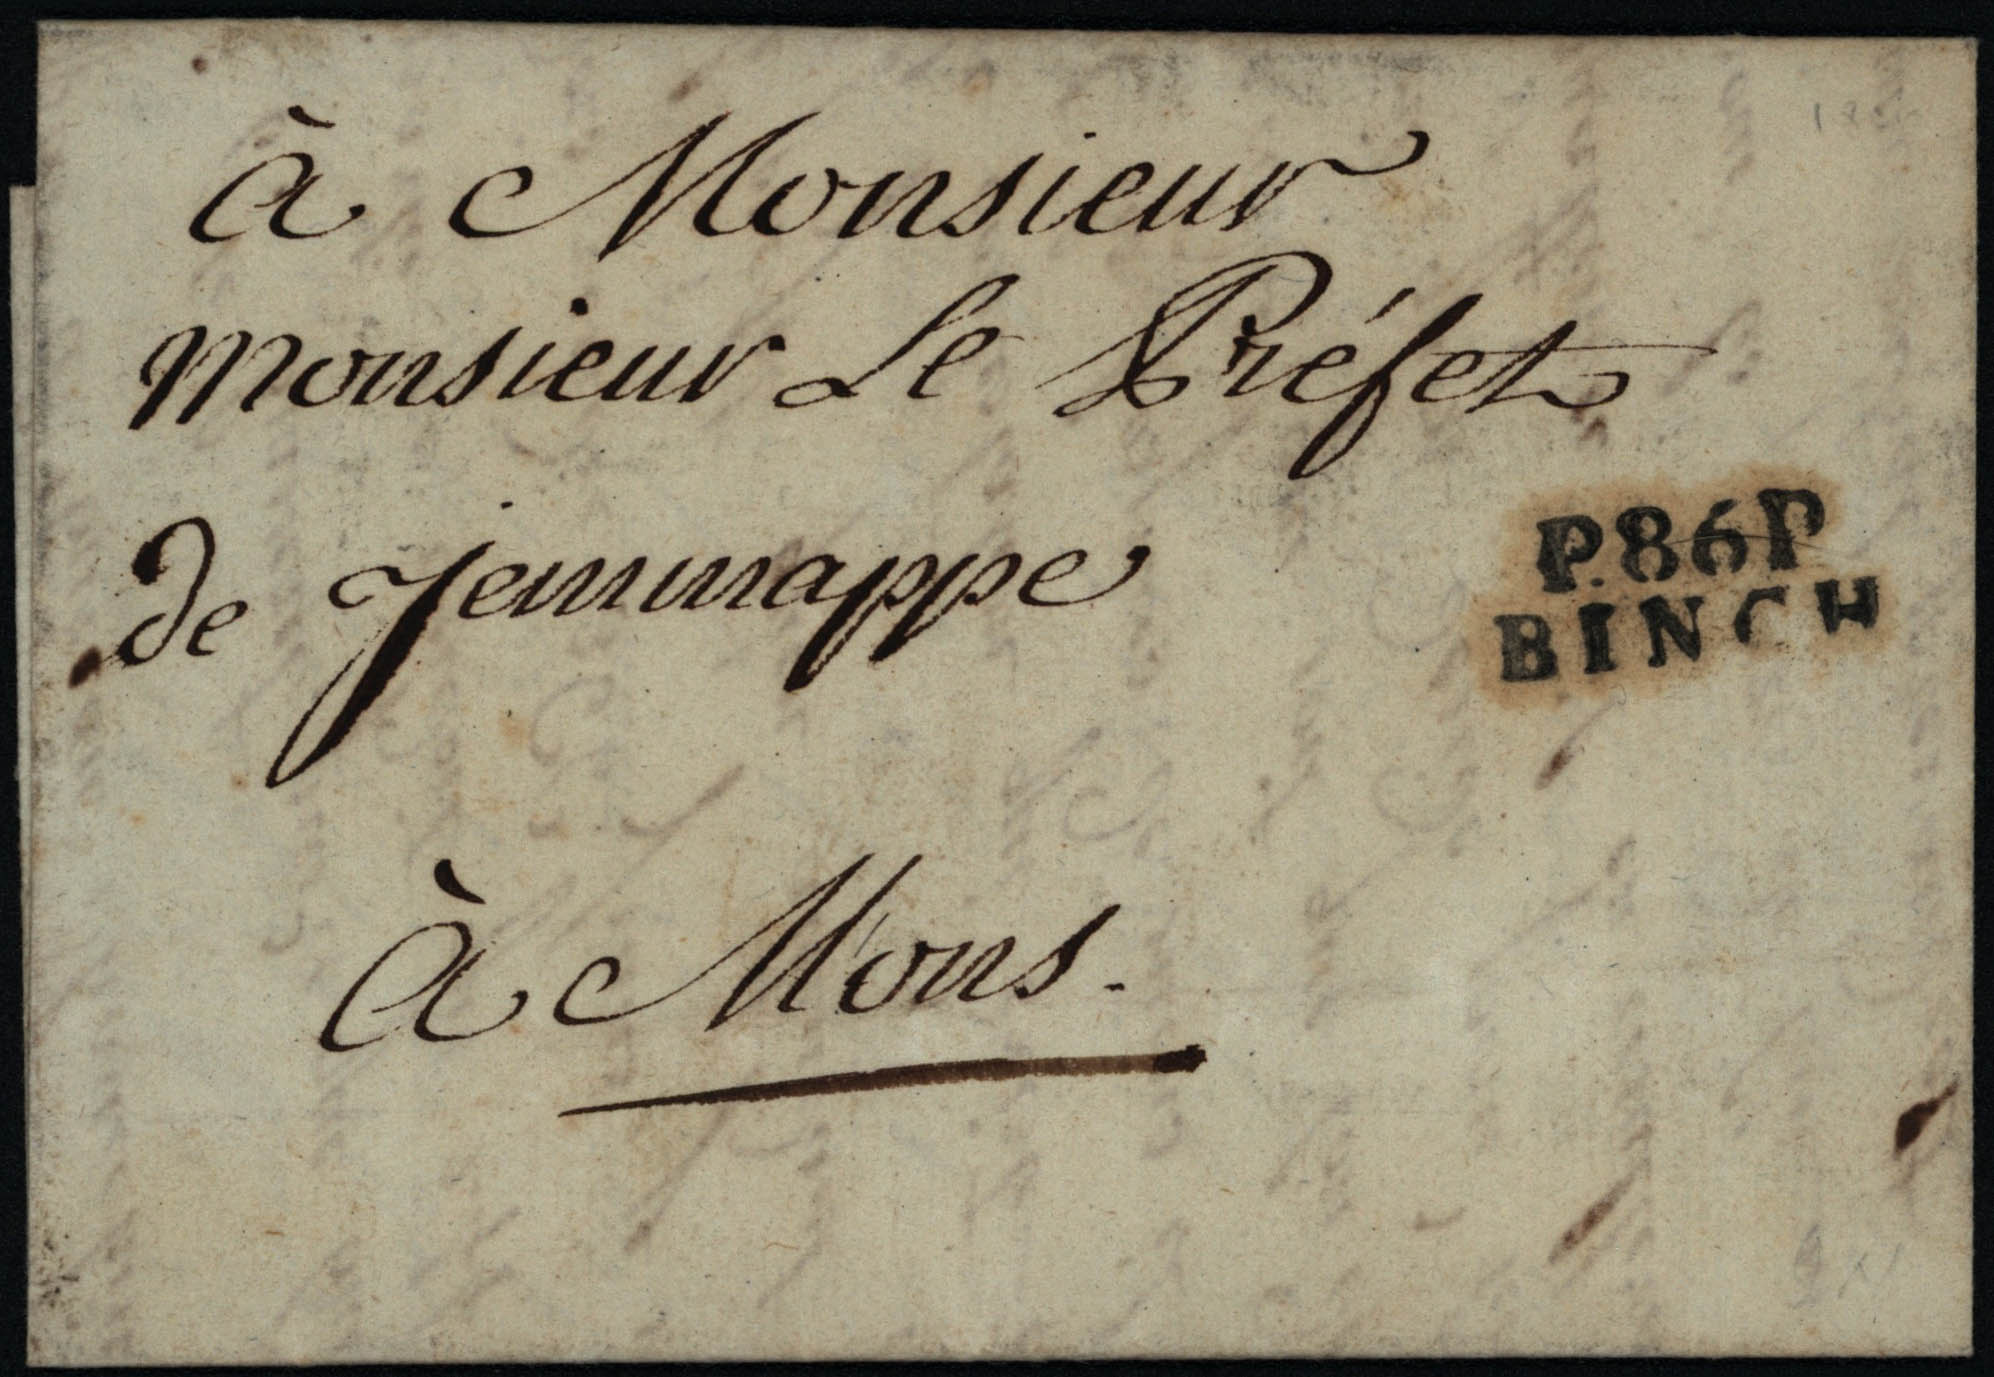 à Monsieur
Monsieur Le Préfet
de Jemmappe
P.86P
BINCH
à Mons.